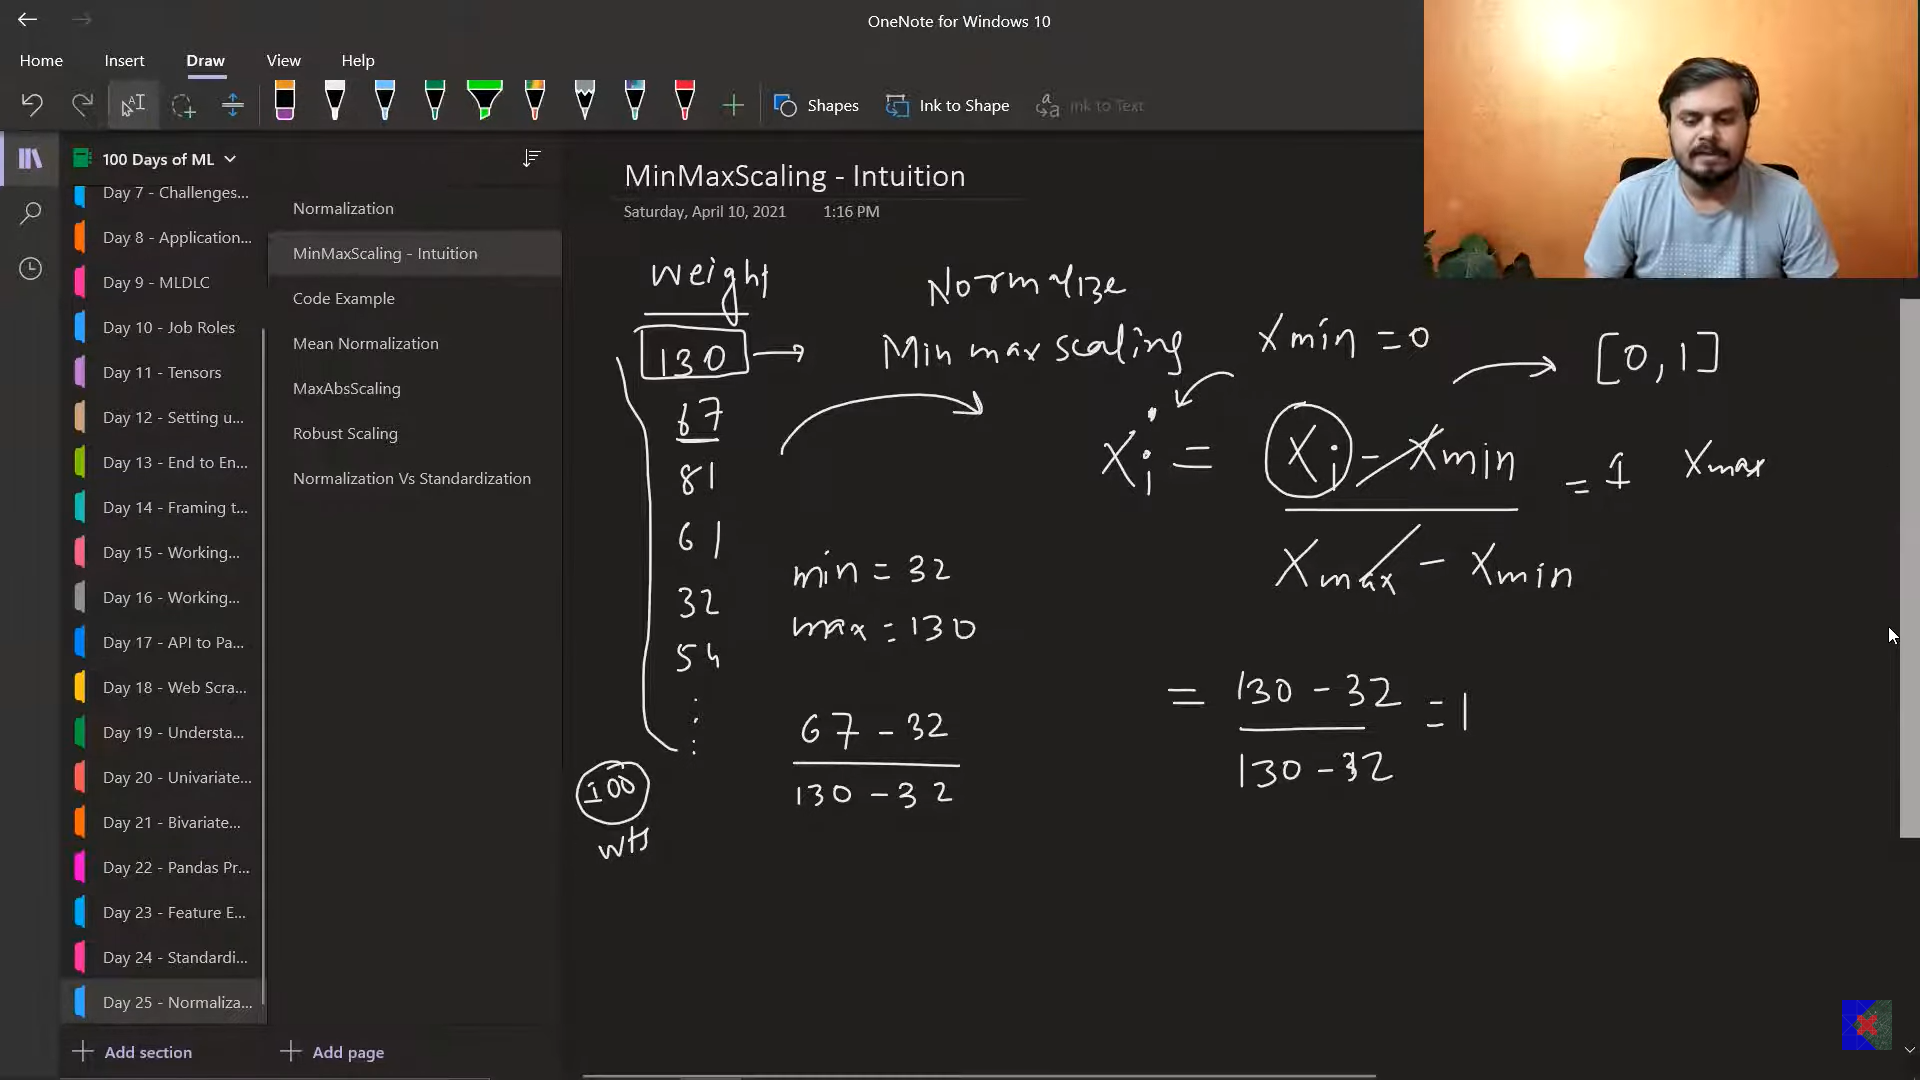 OneNote for Windows 10
Home Insert Draw View Help
Shapes Ink to Shape Ink to Text
100 Days of ML
Day 7 - Challenges...
Day 8 - Application...
Day 9 - MLDLC
Day 10 - Job Roles
Day 11 - Tensors
Day 12 - Setting u...
Day 13 - End to En...
Day 14 - Framing t...
Day 15 - Working...
Day 16 - Working...
Day 17 - API to Pa...
Day 18 - Web Scra...
Day 19 - Understa...
Day 20 - Univariate...
Day 21 - Bivariate...
Day 22 - Pandas Pr...
Day 23 - Feature E...
Day 24 - Standardi...
Day 25 - Normaliza...
Add section
Normalization
MinMaxScaling - Intuition
Code Example
Mean Normalization
MaxAbsScaling
Robust Scaling
Normalization Vs Standardization
Add page
MinMaxScaling - Intuition
Saturday, April 10, 2021 1:16 PM
Weight
130
67
81
61
32
54
100
wts
Normalize
Min max scaling
Xmin = 0
[0,1]
Xi = Xi - Xmin
Xmax - Xmin
= 1
Xmax
min = 32
max = 130
67 - 32
130 - 32
= 130 - 32
130 - 32
= 1